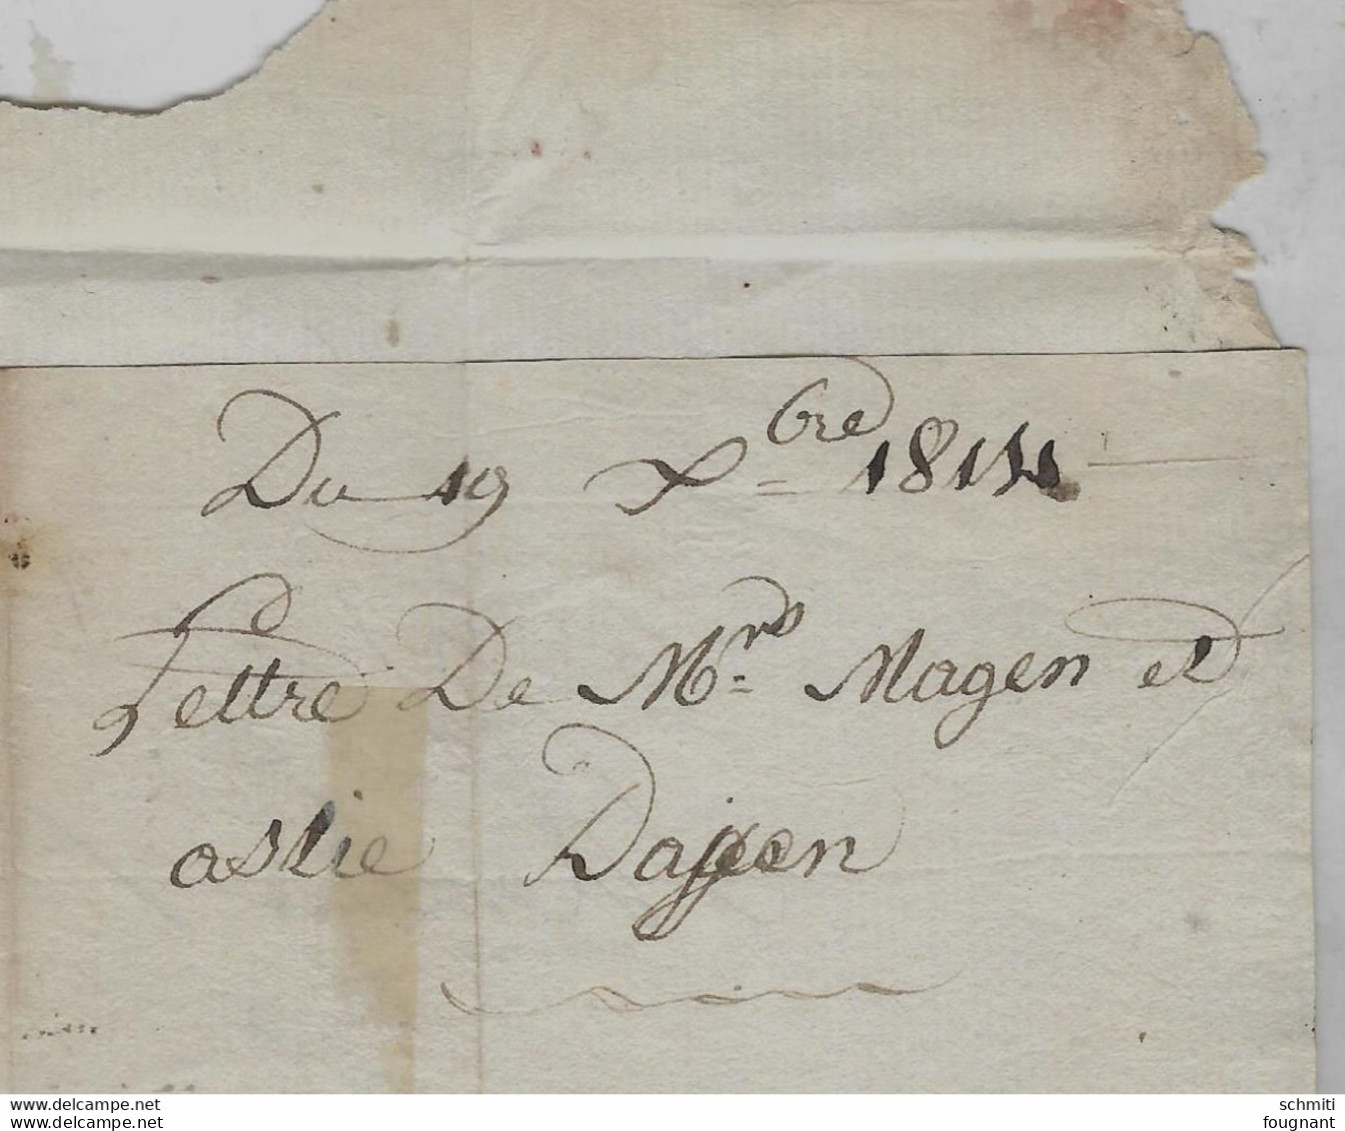 Du 19 Xbre 1814
Lettre De Mrs Magen et
aslie Dagen
www.delcampe.net
www.delcampe.net
schmiti
fougnant